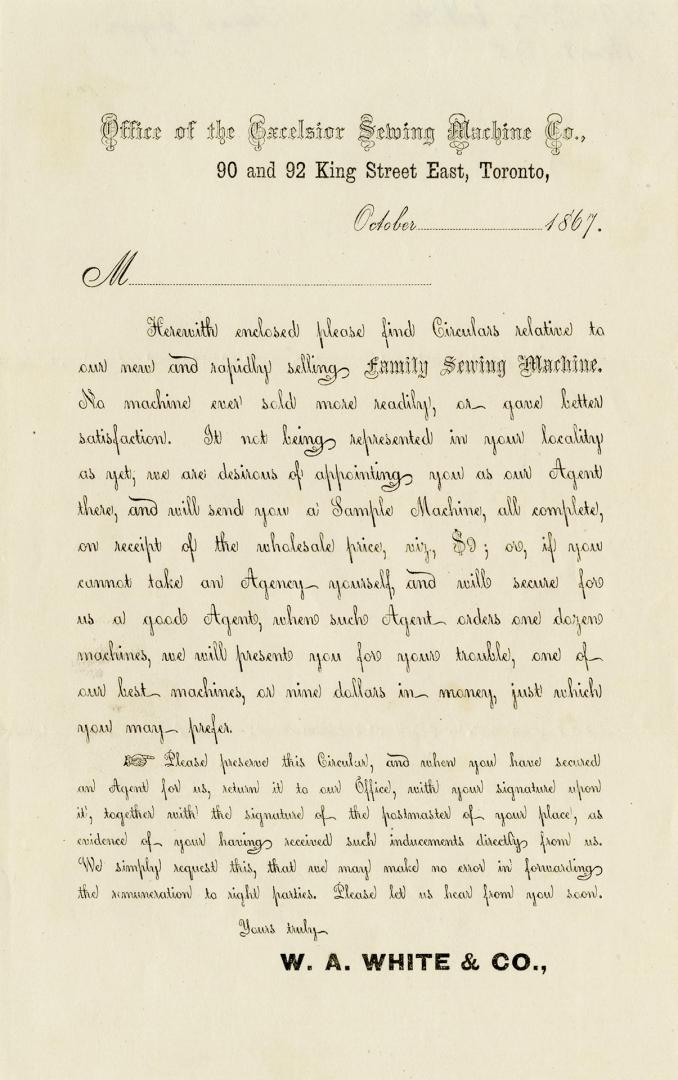 Office of the Excelsior Sewing Machine Co.,
90 and 92 King Street East, Toronto,
October 1867.
M
Herewith enclosed please find Circulars relative to
our new and rapidly selling Family Sewing Machine.
No machine ever sold more readily, or gave better
satisfaction. It not being represented in your locality
as yet, we are desirous of appointing you as our Agent
there, and will send you a Sample Machine, all complete,
on receipt of the wholesale price, viz., $9; or, if you
cannot take an Agency yourself, and will secure for
us a good Agent, when such Agent orders one dozen
machines, we will present you for your trouble, one of
our best machines, or nine dollars in money, just which
you may prefer.
☞ Please preserve this Circular, and when you have secured
an Agent for us, return it to our Office, with your signature upon
it, together with the signature of the postmaster of your place, as
evidence of your having received such inducements directly from us.
We simply request this, that we may make no error in forwarding
the remuneration to right parties. Please let us hear from you soon.
Yours truly
W. A. WHITE & CO.,